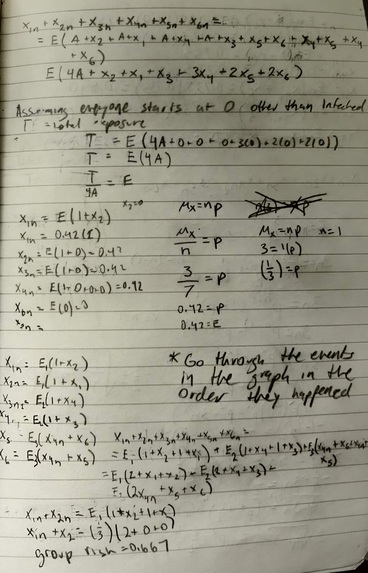 x₁ₙ + x₂ₙ + x₃ₙ + x₄ₙ + x₅ₙ + x₆ₙ =
= E ( A + x₂ + A + x₁ + A + x₄ + A + x₃ + x₅ + x₆ + x₄ + x₅ + x₄
+ x₆ )
E ( 4A + x₂ + x₁ + x₃ + 3x₄ + 2x₅ + 2x₆ )
Assuming everyone starts at 0 other than infected
T = total exposure
T = E ( 4A + 0 + 0 + 0 + 3(0) + 2(0) + 2(0) )
T = E(4A)
T/4A = E
x₁ₙ = E(1+x₂) x₂=0
x₁ₙ = 0.42(1)
x₂ₙ = E(1+0) = 0.42
x₃ₙ = E(1+0) = 0.42
x₄ₙ = E(1+0+0+0) = 0.42
x₆ₙ = E(0) = 0
x₅ₙ =
μₓ = np
μₓ/n = p
3/7 = p
0.42 = p
0.42 = E
μₓ = np n=1
3 = 1(p)
(1/3) = p
x₁ₙ = E₁(1+x₂)
x₂ₙ = E₁(1+x₁)
x₃ₙ = E₂(1+x₄)
x₄ₙ = E₂(1+x₃)
x₅ = E₃(x₄ₙ + x₆)
x₆ = E₃(x₄ₙ + x₅)
* Go through the events
in the graph in the
order they happened
x₁ₙ + x₂ₙ + x₃ₙ + x₄ₙ + x₅ₙ + x₆ₙ =
= E₁(1+x₂+1+x₁) + E₂(1+x₄+1+x₃) + E₃(x₄ₙ+x₆+x₄ₙ+
x₅)
= E₁(2+x₁+x₂) + E₂(2+x₄+x₃) +
E₃(2x₄ₙ + x₅ + x₆)
x₁ₙ + x₂ₙ = E₁(1+x₂+1+x₁)
x₁ₙ + x₂ = (1/3)(2+0+0)
group risk = 0.667